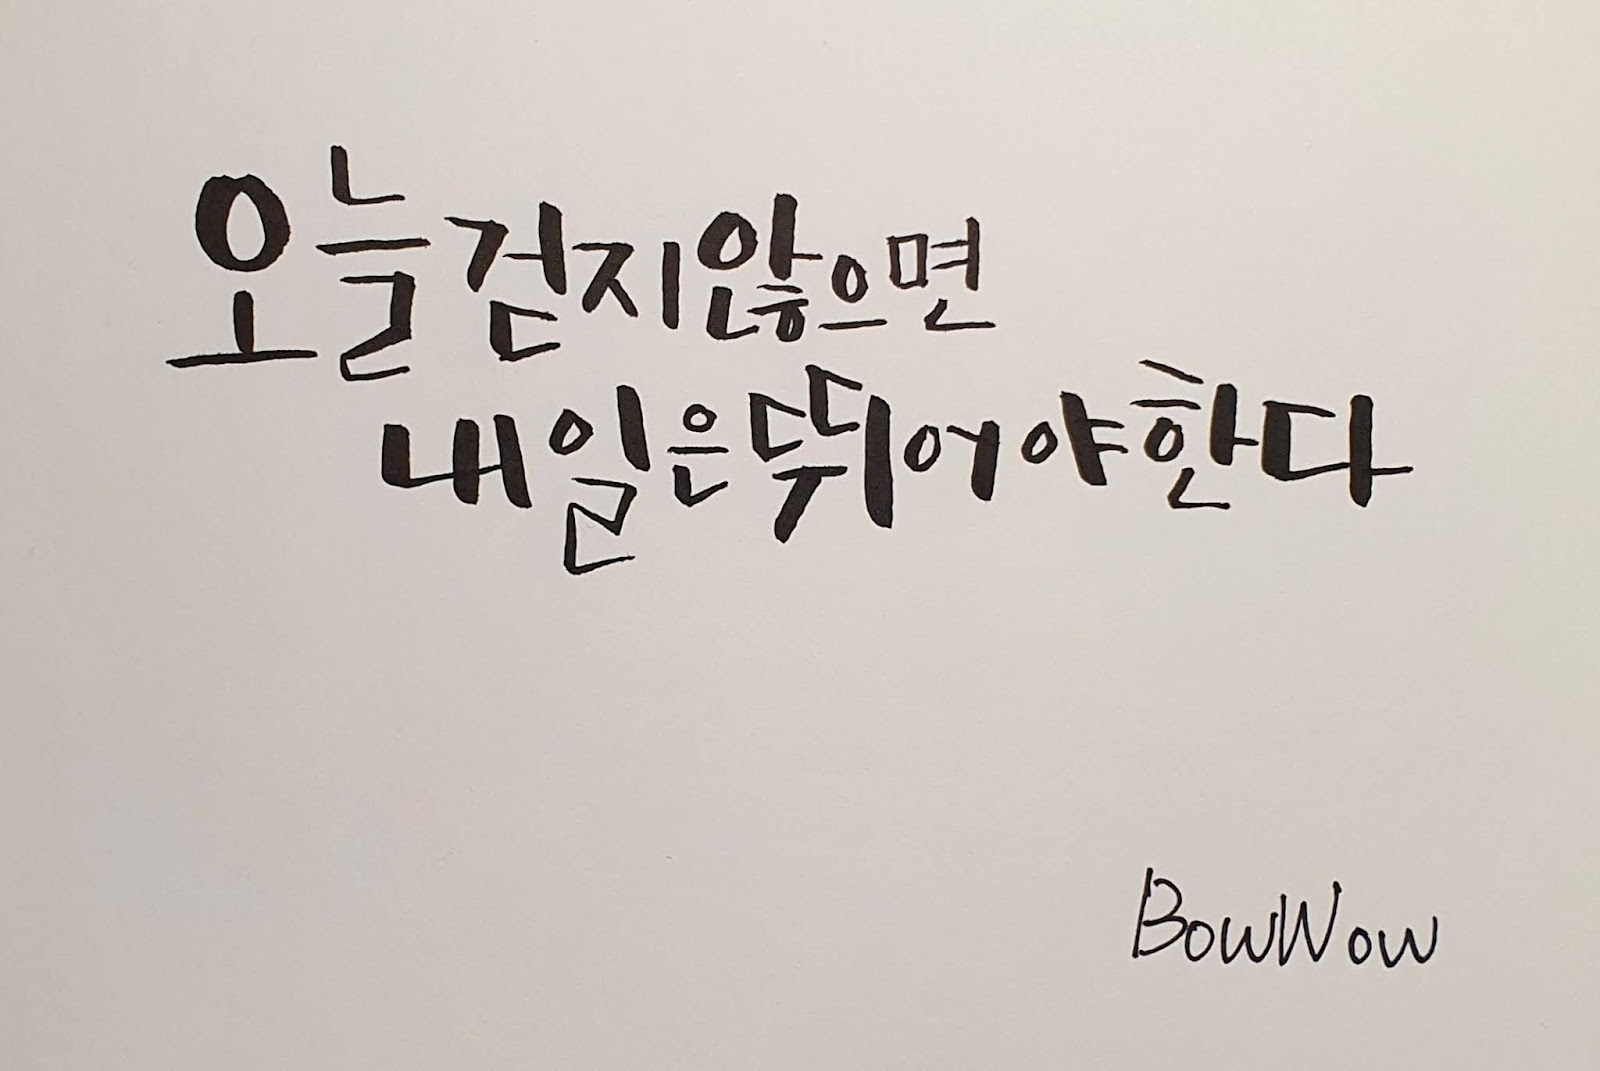 오늘 걷지 않으면
내일은 뛰어야 한다
BowWow